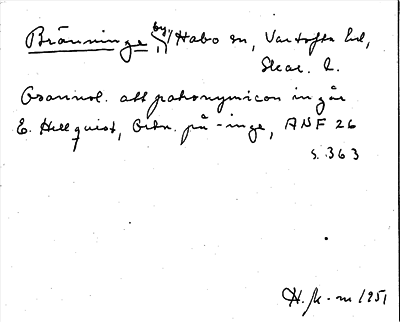 Bränninge by, Habo sn, Vartofta hd,
Skar. l.
Osannol. att patronymicon ingår
E. Hellquist, Ortn. på -inge, ANF 26
s. 363
H. Jk-m 1951